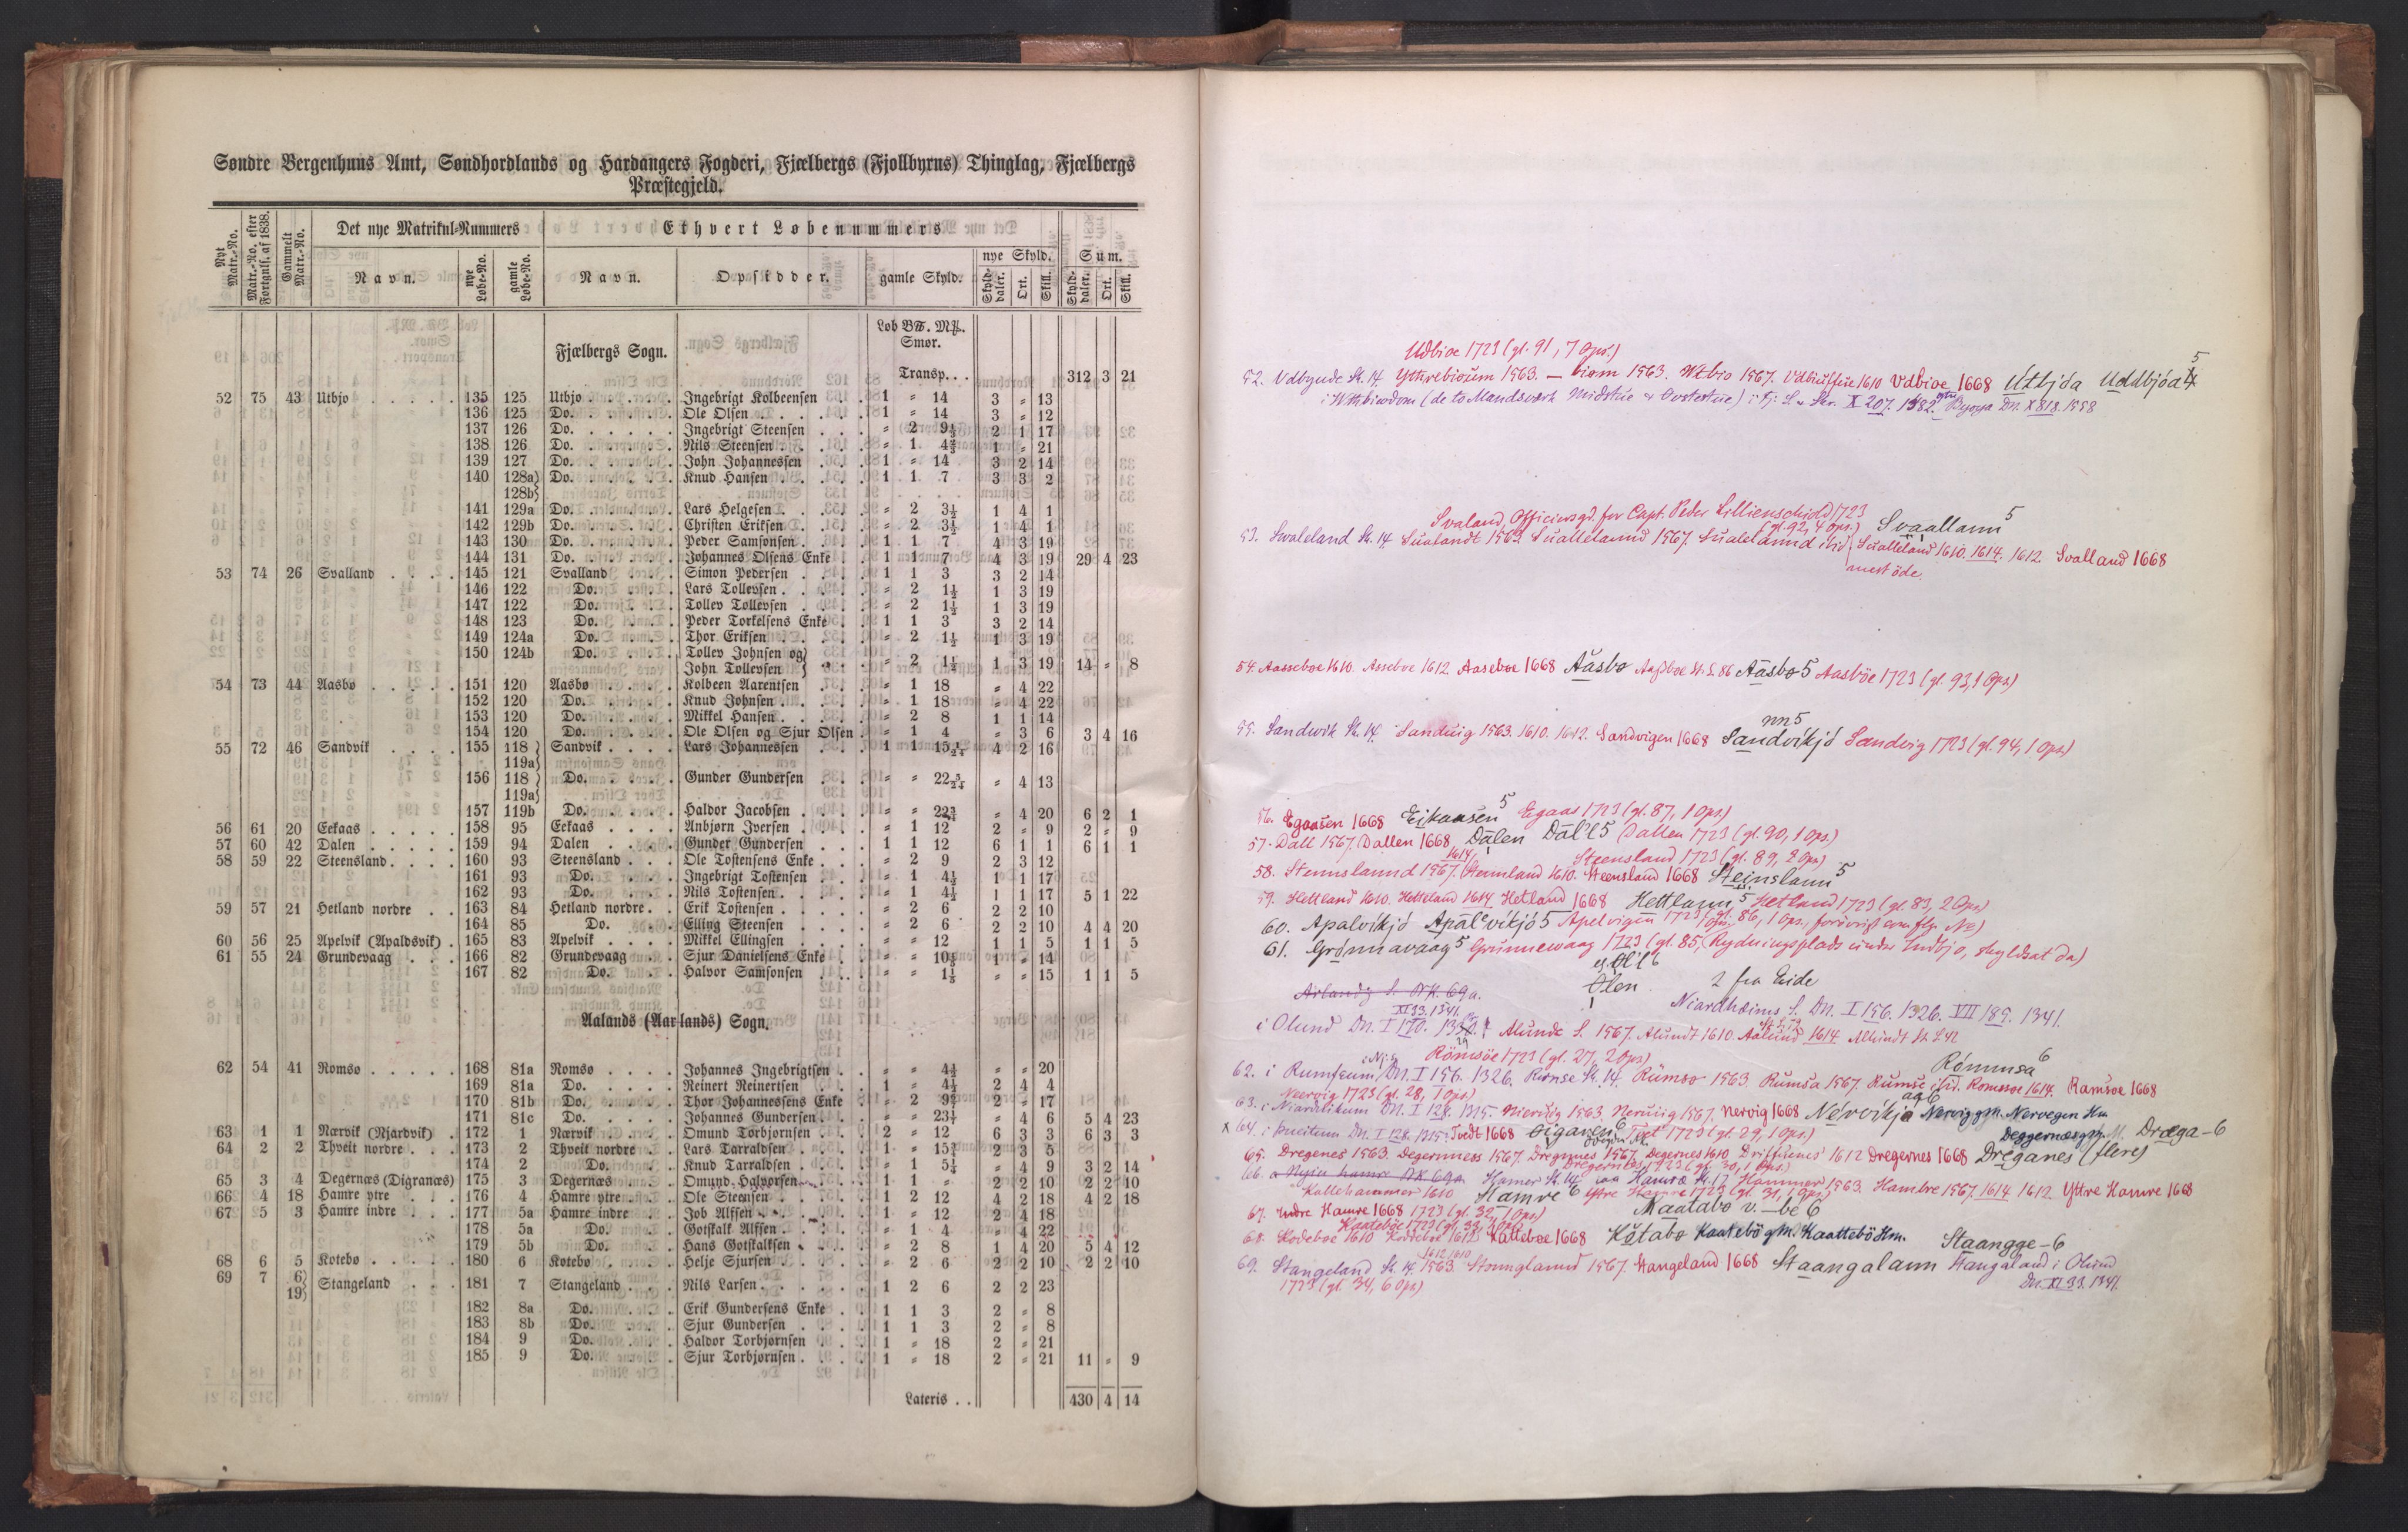 Søndre Bergenhuus Amt, Søndhordlands og Hardangers Fogderi, Fjælbergs (Fjollbyrns) Thinglag, Fjælbergs
Præstegjeld.
Nyt Matr.-No. | Matr.-No. efter Fortgnls. af 1838. | Gammelt Matr.-No. | Det nye Matrikul-Nummers | Ethvert Løbenummers
Navn. | nye Løbe-No. | gamle Løbe-No. | Navn. | Opsidder. | gamle Skyld. | nye Skyld. | Sum.
Skylddaler. | Ort. | Skill. | Skylddaler. | Ort. | Skill.
Løb B℔. M℔.
Fjælbergs Sogn. Smør.
Transp. . . 312 3 21
52 75 43 Utbjo . . . . . 135 125 Utbjo . . . . . Ingebrigt Kolbeensen . . 1 " 14 3 " 13
136 125 Do. . . . . . Ole Olsen . . . . . 1 " 14 3 " 12
137 126 Do. . . . . . Ingebrigt Steensen . . . " 2 9⅓ 2 1 17
138 126 Do. . . . . . Nils Steensen . . . . . " 1 4⅔ 1 " 21
139 127 Do. . . . . . John Johannessen . . . 1 " 14 3 2 14
140 128a} Do. . . . . . Knud Hansen . . . . . 1 1 7 3 3 2
128b}
141 129a Do. . . . . . Lars Helgesen . . . . . " 2 3½ 1 4 1
142 129b Do. . . . . . Christen Eriksen . . . . " 2 3½ 1 4 1
143 130 Do. . . . . . Peder Samsonsen . . . . 1 1 7 4 3 19
144 131 Do. . . . . . Johannes Olsens Enke . . 1 1 7 4 3 19 29 4 23
53 74 26 Svalland . . . . 145 121 Svalland . . . Simon Pedersen . . . . 1 1 3 3 2 14
146 122 Do. . . . Lars Tollevsen . . . . . " 2 1½ 1 3 19
147 122 Do. . . . Tollev Tollevsen . . . . " 2 1½ 1 3 19
148 123 Do. . . . Peder Torkelsens Enke . 1 1 3 3 2 14
149 124a Do. . . . Thor Eriksen . . . . . " 2 1½ 1 3 19
150 124b Do. . . . Tollev Johnsen og}
John Tollevsen } . . . " 2 1½ 1 3 19 14 " 8
54 73 44 Aasbø . . . . . 151 120 Aasbø . . . . Kolbeen Aarentsen . . . " 1 18 " 4 22
152 120 Do. . . . Knud Johnsen . . . . . " 1 18 " 4 22
153 120 Do. . . . Mikkel Hansen . . . . . " 2 8 1 1 14
154 120 Do. . . . Ole Olsen og Sjur Olsen . " 1 4 " 3 6 3 4 16
55 72 46 Sandvik . . . . 155 118 } Sandvik . . . . Lars Johannessen . . . 1 1 4 2 16
119a}
156 118 } Do. . . . Gunder Gundersen . . . " " 4 13
119a}
157 119b Do. . . . Haldor Jacobsen . . . . " " 22¾ " 4 20 6 2 1
56 61 20 Eekaas . . . . . 158 95 Eekaas . . . . Anbjørn Iversen . . . . " 1 12 2 " 9 2 " 9
57 60 42 Dalen . . . . . 159 94 Dalen . . . . Gunder Gundersen . . . 1 1 12 6 1 1 6 1 1
58 59 22 Steensland . . . . 160 93 Steensland . . . Ole Tostensens Enke . . . " 2 9 2 3 12
161 93 Do. . . . Ingebrigt Tostensen . . . " 1 4½ 1 1 17
162 93 Do. . . . Nils Tostensen . . . . . " 1 4½ 1 1 17 5 1 22
59 57 21 Hetland nordre . . 163 84 Hetland nordre . . Erik Tostensen . . . . . " 2 6 2 2 10
164 85 Do. . . . Elling Steensen . . . . " 2 6 2 2 10 4 4 20
60 56 25 Apelvik (Apaldsvik) . 165 83 Apelvik . . . . Mikkel Ellingsen . . . . " " 12 1 1 5 1 1 5
61 55 24 Grundevaag . . . 166 82 Grundevaag . . Sjur Danielsens Enke . . " " 1 " 14
167 82 Do. . . . Halvor Samsonsen . . . " " " " 15 1 1 5
Aalands (Aarlands) Sogn.
62 54 41 Romsø . . . . . 168 81a Romsø . . . . Johannes Ingebrigtsen . . " " " " 20
169 81a Do. . . . Reinert Reinertsen . . . 1 " 2 4 4
170 81b Do. . . . Thor Johannessens Enke . " 2 2 " 17
171 81c Do. . . . Johannes Gundersen . . . " " " 4 6 5 4 23
63 1 1 Nærvik (Njardvik) . 172 1 Nærvik . . . . Omund Torbjørnsen . . . 2 " 12 6 3 3 6 3 3
64 2 2 Thveit nordre . . . 173 2 Thveit nordre . . Lars Tarraldsen . . . . 1 " 2 3 5
174 2 Do. . . . Knud Tarraldsen . . . . " 1 " 4 9 3 2 14
65 3 4 Degernæs (Digranæs) 175 3 Degernæs . . . Omund Halvorsen . . . . 1 1 " 2 2 10 2 2 10
66 4 18 Hamre ytre . . . 176 4 Hamre ytre . . . Ole Steensen . . . . . 1 2 12 4 2 18 4 2 18
67 5 3 Hamre indre . . . 177 5a Hamre indre . . Job Alfsen . . . . . 1 " 12 2 4 18
178 5a Do. . . . Gotskalk Alfsen . . . . " 1 4 " 4 22
179 5b Do. . . . Hans Gotskalksen . . . . " 2 8 1 4 20 5 4 12
68 6 5 Kotebø . . . . . 180 6 Kotebø . . . . Helje Sjursen . . . . . " 2 6 2 2 10 2 2 10
69 7 6} 19} Stangeland . . . 181 7 Stangeland . . . Nils Larsen . . . . . . 1 2 6 2 2 23
182 8a Do. . . . Erik Gundersens Enke . . 1 1 3 2 " 8
183 8b Do. . . . Sjur Gundersen . . . . 1 1 3 2 " 8
184 9 Do. . . . Haldor Torbjørnsen . . . 1 " 18 2 " 21
185 9 Do. . . . Sjur Torbjørnsen . . . . 1 " 18 2 " 21 11 " 9
Lateris . . 430 4 14
Udbioe 1723 (gl. 91, 7 Ops.)
52. Vdbynde St. 14. Ythrebioum 1563. — biom 1563. Wtbio 1567. 1610 Vdbioe 1668 Utbjóa Uddbjóa
(de to Mandsværk Midstue & Oustestue) i Fj: S. X 207. 1582. DN. X 818. 1598
Svaland, Officiersgd. for Capt. Peder Lillienschiold 1723
(gl. 92, 4 Ops.) Svaallann 5
53. Swaleland St. 14. Sualandt 1563. Suallelannd 1567. Sualelannd ibid Sualleland 1610. 1614. 1612. Svalland 1668
öde.
54. Aasseboe 1610. Asseboe 1612. Aaseboe 1668 Aasbø St. L 86 Aasbø 5 Aasböe 1723 (gl. 93, 1 Ops.)
nn 5
55. Sandwik St. 14. Sanduig 1563. 1610. 1612. Sandvigen 1668 Sandvikjó Sandvig 1723 (gl. 94, 1 Ops.)
56. Egaasen 1668 Eikaasen 5 Egaas 1723 (gl. 87, 1 Ops.)
57. Dall 1567. Dallen 1668, Dalen Dal'l 5 Dallen 1723 (gl. 90, 1 Ops.)
1614 Steensland 1723 (gl. 89, 2 Ops.)
58. Stennslannd 1567. Stennland 1610. Steensland 1668 Steinslann 5
59. Hettland 1610. Hetteland 1614. Hetland 1668 Hettlann 5 Hetland 1723 (gl. 83, 2 Ops.)
60. Apalvikjó Apal'vikjó 5 Apelvigen 1723 (gl. 86, 1 Ops.,
61. Grönnavaag 5 Grünnewaag 1723 (gl. 85, Rydningsplads under Indbjo, skyldsat da)
Arlandz S. BK. 69a. Ølen 2 fra Eide
XI 33. 1341. Niardheims S. DN. I 156. 1326. VII 189. 1341.
i Olund DN. I 170. Alunde S. 1567. Alundt 1610. Aalund 1614
Römsöe 1723 (gl. 27, 2 Ops.) Römmsa 6
62. i Rumseum, DN. I 156. 1326. Romse St. 14. Rümso 1563 Rumsa 1567. Rumse ibid. Romssoe 1614. Ramsoe 1668
Neervig 1723 (gl. 28, 1 Ops.)
63. i Niardvikum DN. I 128. 1315. 1563 Neruiig 1567. Nervig 1668 Nervikjo Nervig ggm. Nervegen Hm.
x 64. i Þueitum DN. I 128. 1315. Tvedt 1668 1723 (gl. 29, 1 Ops.) Deggernæs ggm. Dræga-6
65. Dregenes 1563. Degernness 1567. 1567. Degernes 1610 1612 Dregernes 1668 Dreganes (flere)
1723 (gl. 30, 1 Ops.)
66. a Nyia hamre BK 69a Hamer St. 14. Hamræ St. 17 Hammer 1563. Hambre 1567. 1614. 1612. Yttre Hamre 1668
1610 Hamre 6 Yttre Hamre 1723 (gl. 31, 1 Ops.)
67. Indre Hamre 1668 1723 (gl. 32, 1 Ops.) Maatabø v. -be 6
Kaateböe 1723 (gl. 33,
68. Kodeboe 1610 Kodeboe 1612 Katteboe 1668 Kåtabø Kaatebö ggm. Kaattebö Hm. Staangge-6
1612 1610
69. Stangeland St. 14. 1563. Stannglannd 1567. Stangeland 1668 Staangalann Stangaland i Olund
1723 (gl. 34, 6 Ops.) DN. XI 33. 1341.